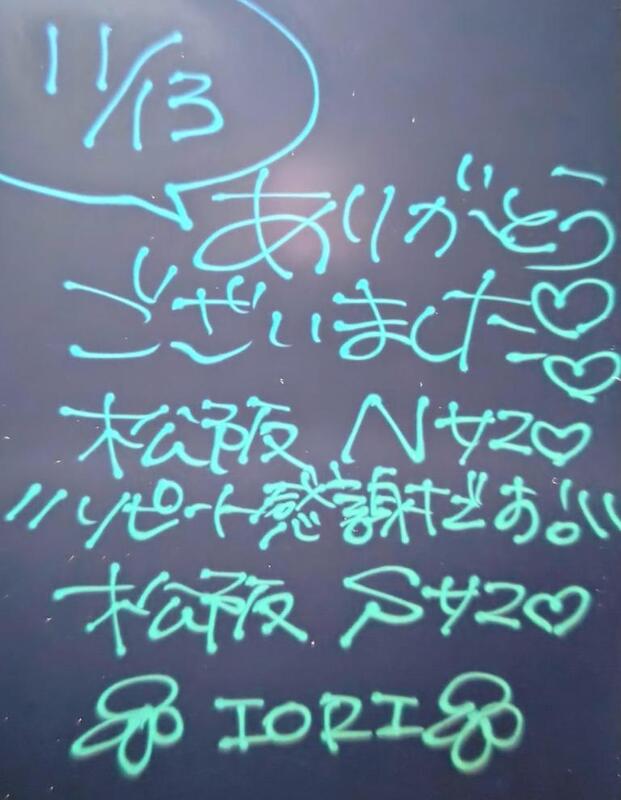 11/13
ありがとう
ございました♡♡
松阪 Nサン♡
リピート感謝だぁ!
松阪 Sサン♡
IORI